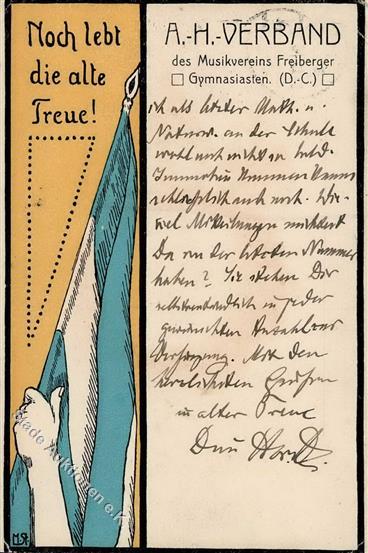 Noch lebt
die alte
Treue!
A.-H.-VERBAND
des Musikvereins Freiberger
Gymnasiasten. (D.-C.)
ich als letzter Math. u.
Naturw. an der Schule
wohl auch nicht so bald.
Immerhin kommen kann
schliesslich auch noch. Wie-
viel Mitteilungen möchtest
Du von der letzten Nummer
haben? Sie stehen Dir
selbstverständlich in jeder
gewünschten Anzahl zur
Verfügung. Mit den
herzlichsten Grüßen
in alter Treue
Dein
Blade Auktionen e.K.